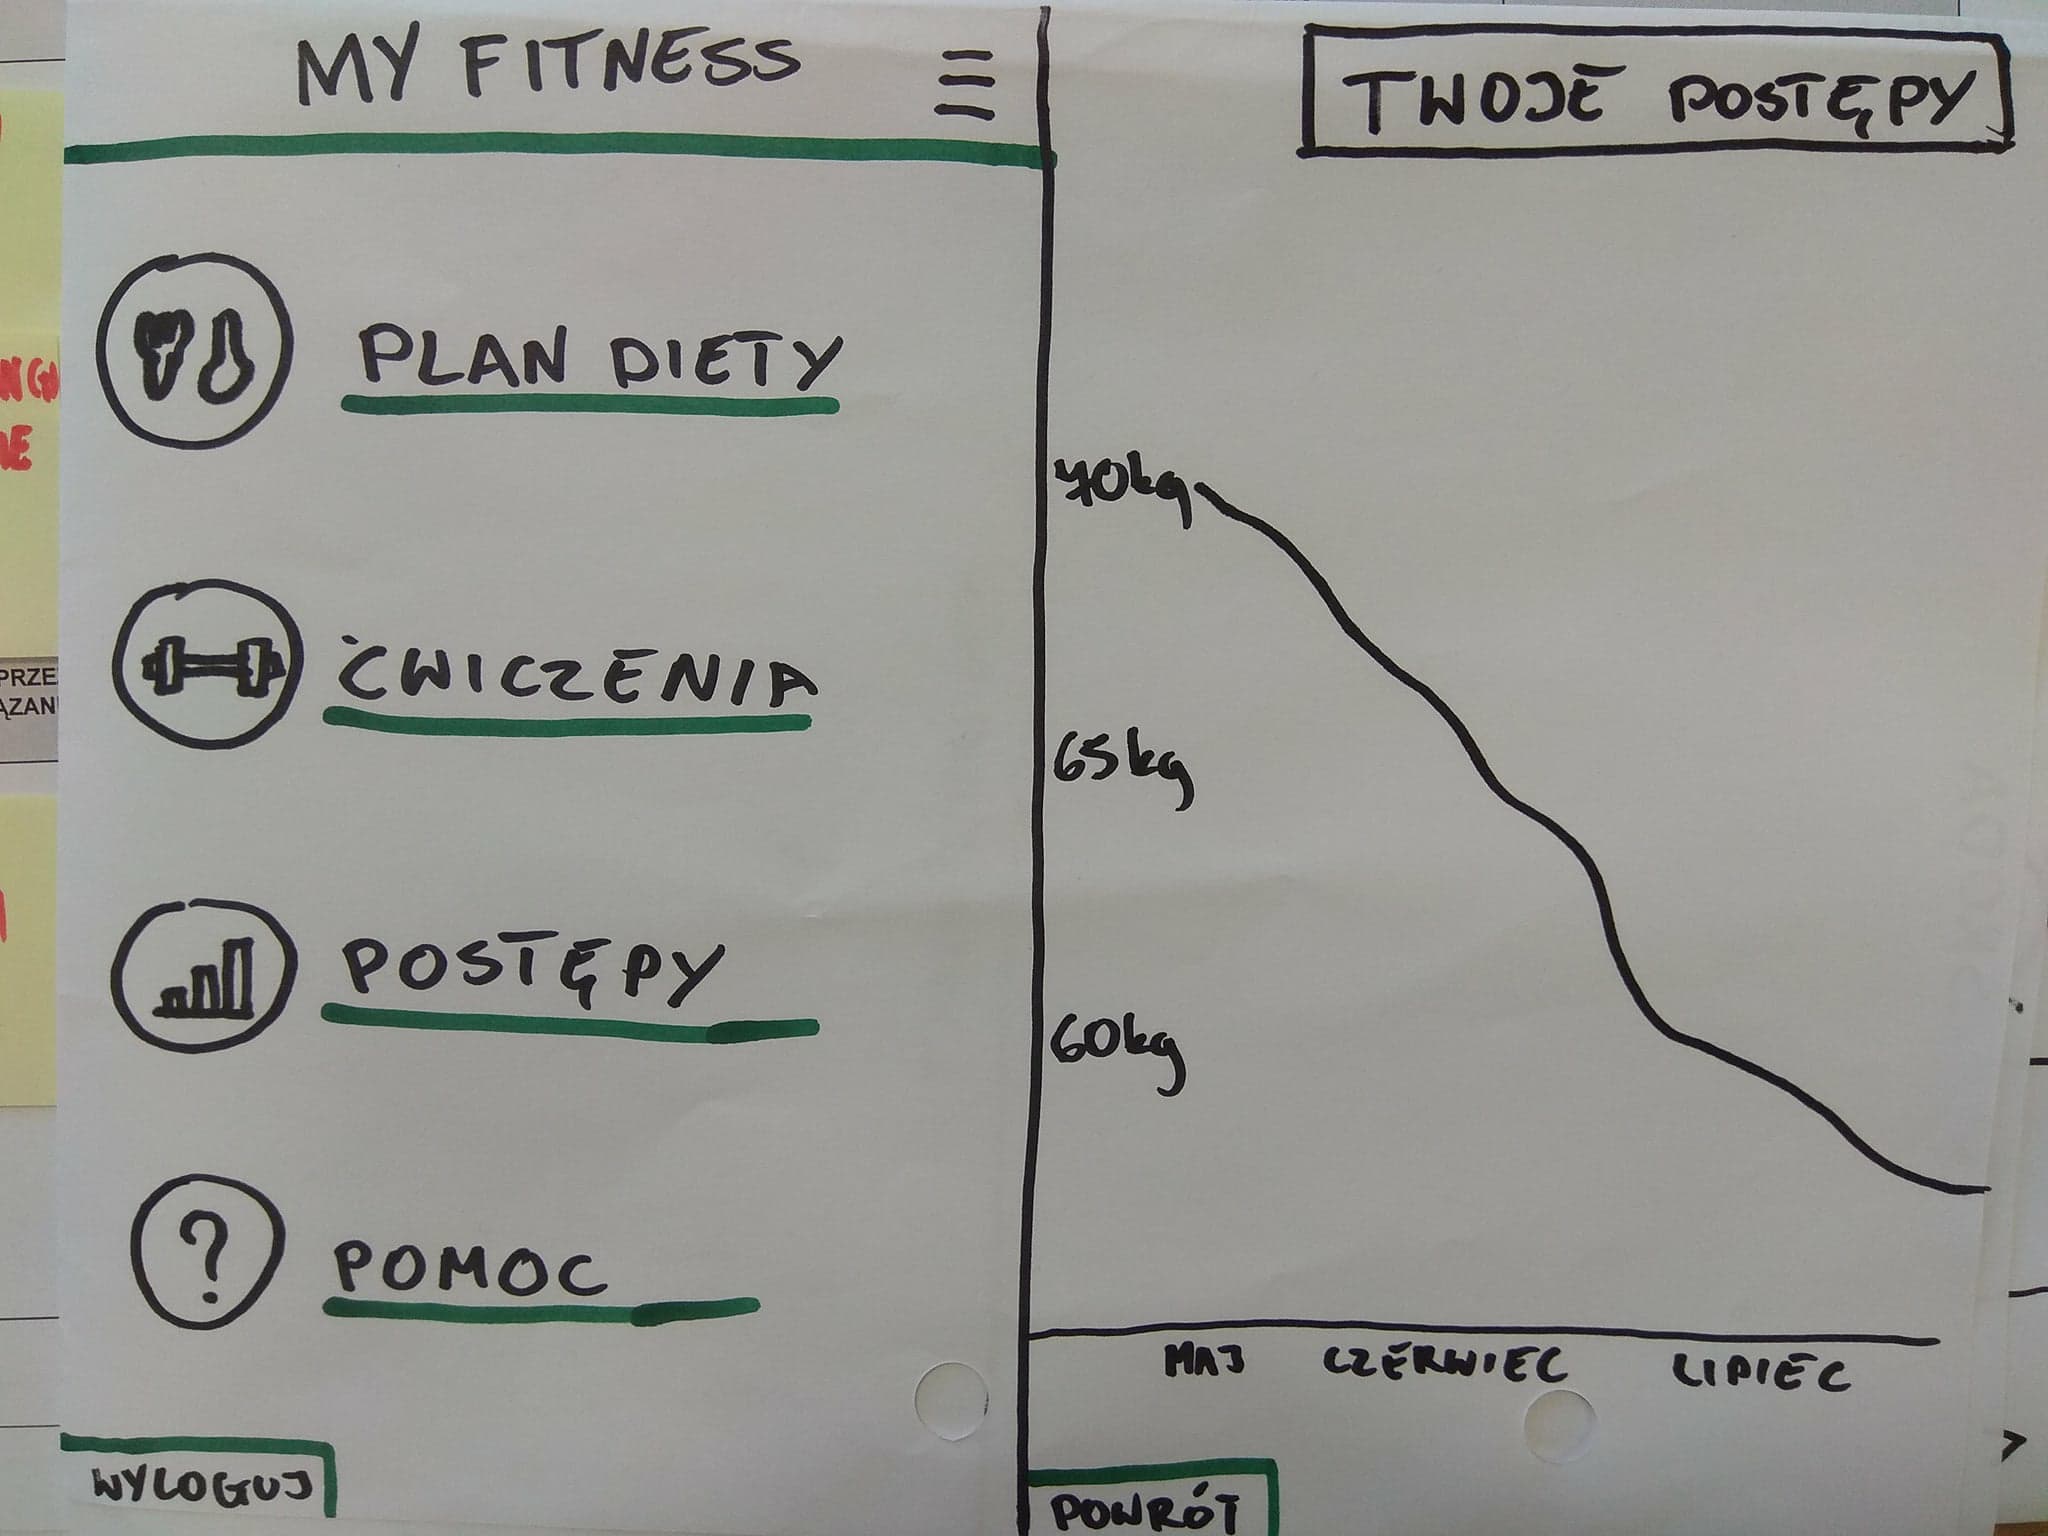 MY FITNESS
PLAN DIETY
ĆWICZENIA
POSTĘPY
?
POMOC
WYLOGUJ
TWOJE POSTĘPY
70kg
65kg
60kg
MAJ CZERWIEC LIPIEC
POWRÓT
PRZE
ĄZAN